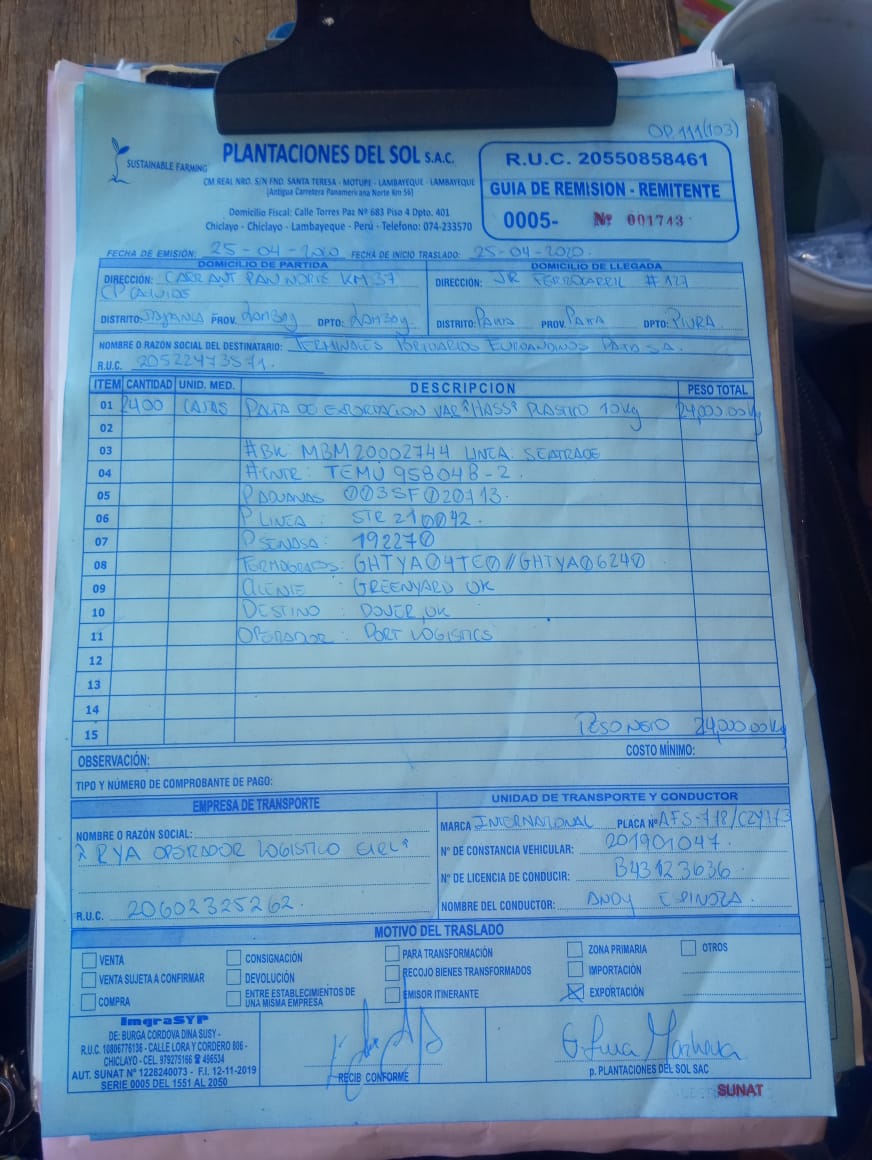 OP. 111(103)
SUSTAINABLE FARMING
PLANTACIONES DEL SOL S.A.C.
CM REAL NRO. S/N FND. SANTA TERESA - MOTUPE - LAMBAYEQUE - LAMBAYEQUE
(Antigua Carretera Panamericana Norte Km 56)
Domicilio Fiscal: Calle Torres Paz Nº 683 Piso 4 Dpto. 401
Chiclayo - Chiclayo - Lambayeque - Perú - Telefono: 074-233570
R.U.C. 20550858461
GUIA DE REMISION - REMITENTE
0005- Nº 001743
FECHA DE EMISIÓN: 25-04-2020 FECHA DE INICIO TRASLADO: 25-04-2020.
DOMICILIO DE PARTIDA
DIRECCIÓN: CARR ANT PAN NORTE KM 37
CP
DISTRITO: PROV. Lambay DPTO: Lambay.
DOMICILIO DE LLEGADA
DIRECCIÓN: JR FERROCARRIL # 127
DISTRITO: PAITA PROV. PAITA DPTO: PIURA.
NOMBRE O RAZON SOCIAL DEL DESTINATARIO: TERMINALES PORTUARIOS EUROANDINOS PAITA S.A.
R.U.C. 20522473571.
ITEM CANTIDAD UNID. MED. DESCRIPCION PESO TOTAL
01 2400 CAJAS PALTA DE EXPORTACION VAR "HASS" PLASTICO 10Kg 24,000.00Kg
02
03 #BK: MBM20002744 LINEA: SEATRADE
04 #CNTR: TEMU 958048-2.
05 P ADUANAS 003SF020713.
06 P LINEA : STR 210042.
07 P SENASA: 192270
08 TERMOGRAFOS: GHTYA04TE0//GHTYA06240
09 CLIENTE : GREENYARD UK
10 DESTINO : DOVER, UK
11 OPERADOR : PORT LOGISTICS
12
13
14
15 PESO NETO 24,000.00Kg
OBSERVACIÓN: COSTO MÍNIMO:
TIPO Y NÚMERO DE COMPROBANTE DE PAGO:
EMPRESA DE TRANSPORTE
NOMBRE O RAZÓN SOCIAL:
" RYA OPERADOR LOGISTICO EIRL"
R.U.C. 20602325262.
UNIDAD DE TRANSPORTE Y CONDUCTOR
MARCA INTERNATIONAL PLACA Nº AFS-718/
Nº DE CONSTANCIA VEHICULAR: 201901047.
Nº DE LICENCIA DE CONDUCIR: B43123636
NOMBRE DEL CONDUCTOR: ANDY ESPINOZA.
MOTIVO DEL TRASLADO
VENTA CONSIGNACIÓN PARA TRANSFORMACIÓN ZONA PRIMARIA OTROS
VENTA SUJETA A CONFIRMAR DEVOLUCIÓN RECOJO BIENES TRANSFORMADOS IMPORTACIÓN
COMPRA ENTRE ESTABLECIMIENTOS DE UNA MISMA EMPRESA EMISOR ITINERANTE EXPORTACIÓN
ImgraSYP
DE: BURGA CORDOVA DINA SUSY -
R.U.C. 10806776136 - CALLE LORA Y CORDERO 806 -
CHICLAYO - CEL. 979275166 ☎ 496534
AUT. SUNAT Nº 1228240073 - F.I. 12-11-2019
SERIE 0005 DEL 1551 AL 2050
RECIBI CONFORME
p. PLANTACIONES DEL SOL SAC
SUNAT